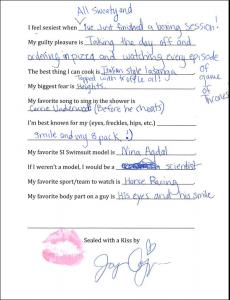 All Sweaty and
I feel sexiest when I've Just finished a boxing session!
My guilty pleasure is Taking the day off and
ordering in pizza and watching every episode
of game of Thrones
The best thing I can cook is Italian style lasanga
Topped with truffle oil!
My biggest fear is Heights.
My favorite song to sing in the shower is
Carrie Underwood (Before he cheats)
I'm best known for my (eyes, freckles, hips, etc.)
smile and my 8 pack :)
My favorite SI Swimsuit model is Nina Agdal
If I weren't a model, I would be a scientist
My favorite sport/team to watch is Horse Racing
My favorite body part on a guy is His eyes and his smile
Sealed with a Kiss by